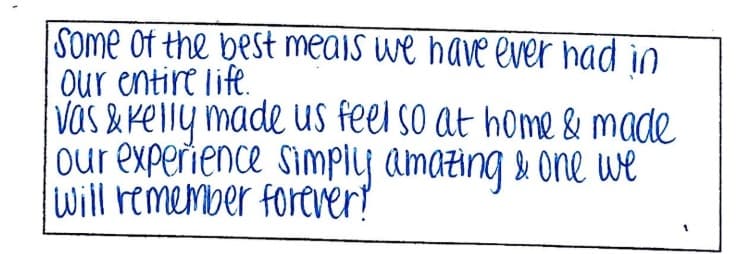 Some of the best meals we have ever had in
our entire life.
Vas & Kelly made us feel so at home & made
our experience simply amazing & one we
will remember forever!